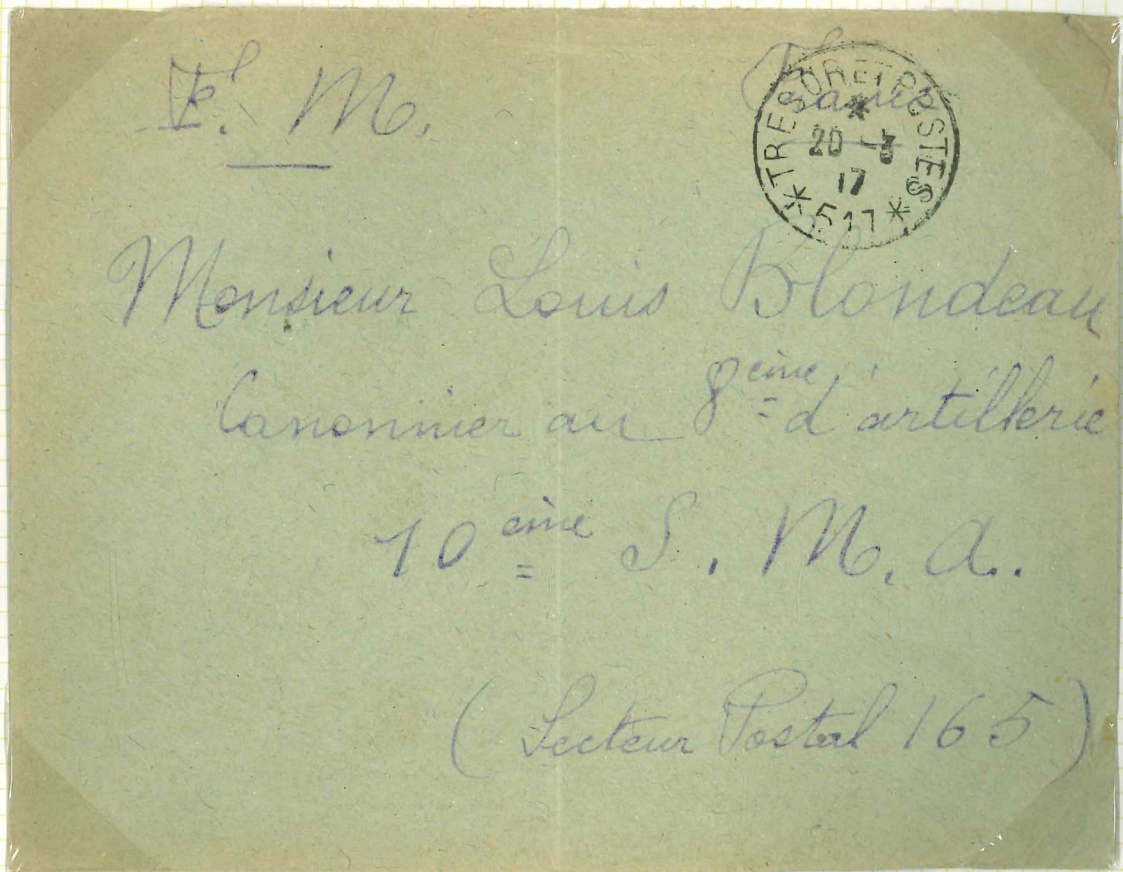 F. M. France
TRESOR ET POSTES
*
20 -3
17
* 517 *
Monsieur Louis Blondeau
Canonnier au 8ème d'artillerie
10ème S. M. A.
(Secteur Postal 165)